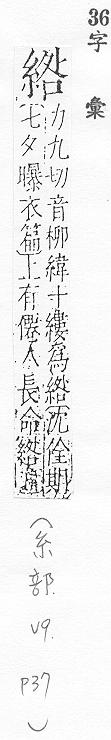 36字彙
綹
力九切音柳緯十縷為綹沈佺期
七夕曝衣篇上有僊人長命綹
(糸部. V9. P37)